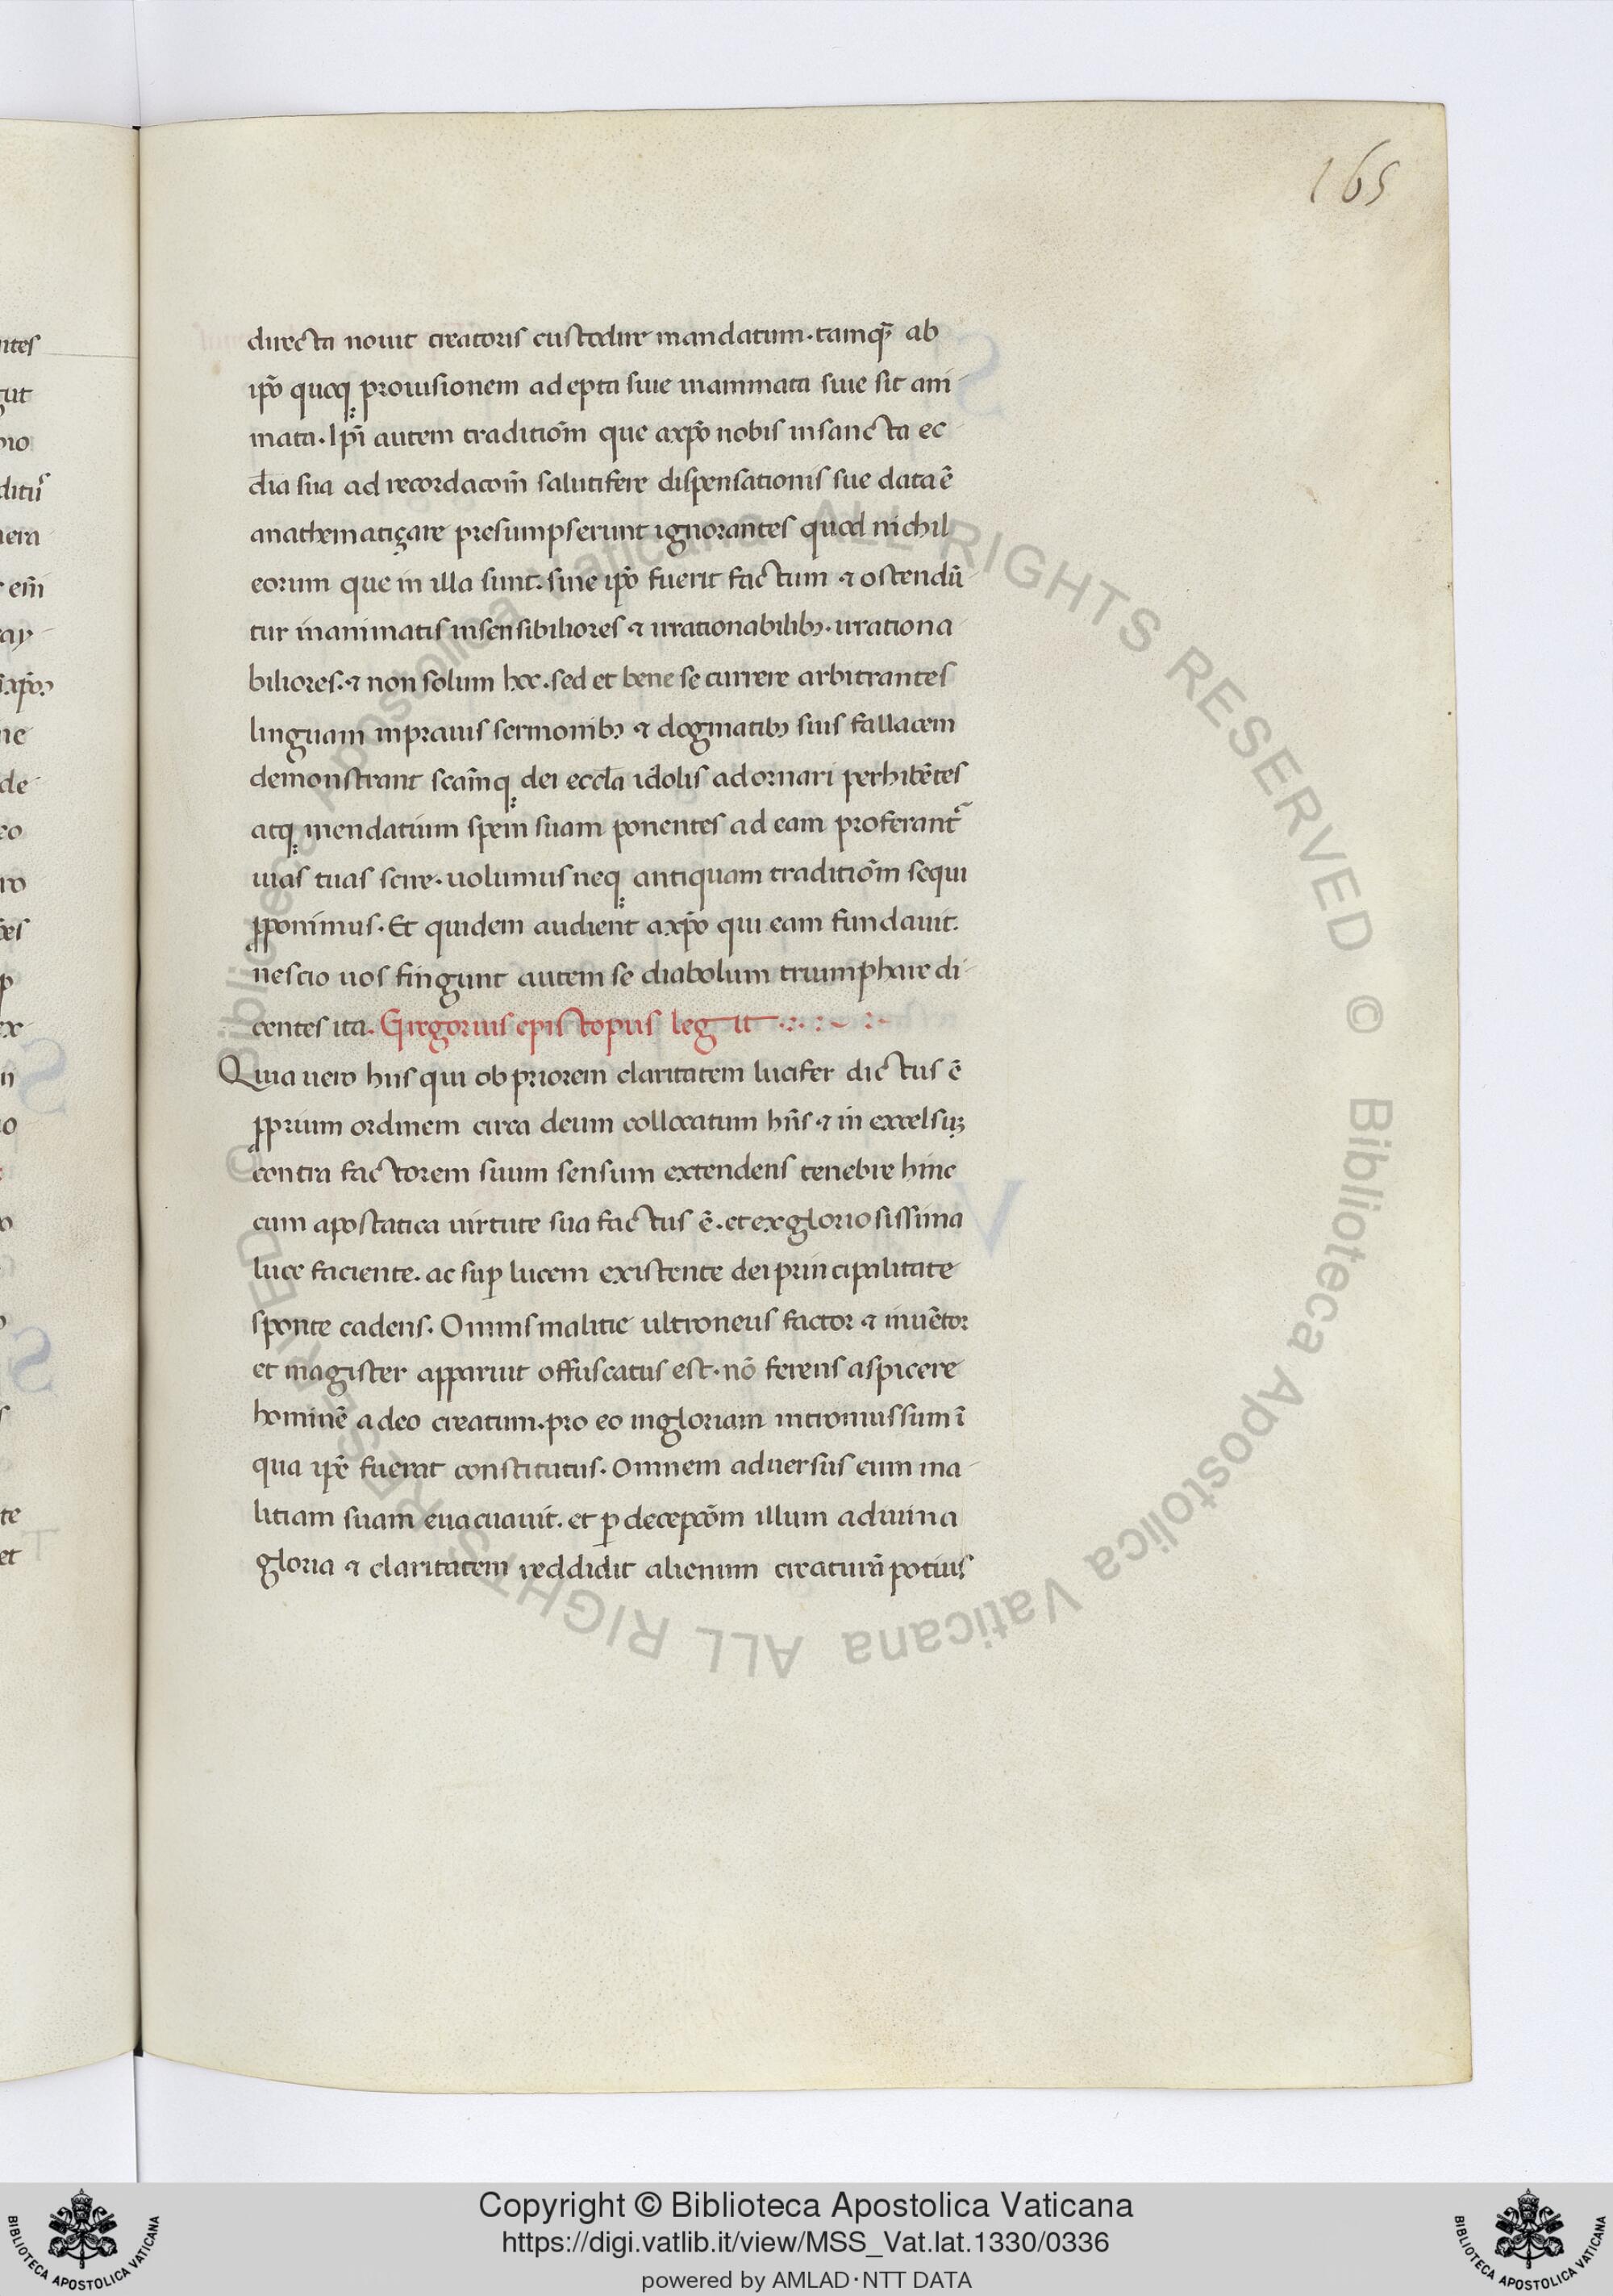 165
directa nouit creatoris custodire mandatum. tamqȝ ab
ip̄o quoqꝫ prouisionem adepta siue inanimata siue sit ani
mata. Ip̄i autem traditiōm que axp̄o nobis insancta ec
cl̄ia sua ad recordacōm̄ salutifere dispensationis sue data ē
anathematiçare presumpserunt ignorantes quod nichil
eorum que in illa sunt. sine ip̄o fuerit factum ⁊ ostendū
tur inanimatis insensibiliores ⁊ irrationabilibꝫ. irrationa
biliores. ⁊ non solum hoc. sed et bene se currere arbitrantes
linguam inprauis sermonibꝫ ⁊ dogmatibꝫ suis fallacem
demonstrant scām̄qꝫ dei eccl̄a idolis adornari perhibētes
atqꝫ mendatium spem suam ponentes ad eam proferant᷑
uias tuas scire. uolumus neqꝫ antiquam traditiōm sequi
ꝓponimus. Et quidem audient axp̄o qui eam fundauit.
nescio uos fingunt autem se diabolum triumphare di
centes ita. Gregorius episcopus legit
Quia uero hiis qui ob priorem claritatem lucifer dictus ē
ꝓprium ordinem circa deum collocatum hn̄s ⁊ in excelsuȝ
contra factorem suum sensum extendens tenebre hinc
cum apostatica uirtute sua factus ē. et ex gloriosissima
luce faciente. ac suꝑ lucem existente dei principalitate
sponte cadens. Omnis malitie ultroneus factor ⁊ inuētor
et magister apparuit offuscatus est. nō ferens aspicere
hominē adeo creatum. pro eo ingloriam intromissum ī
qua ip̄e fuerat constitutus. Omnem aduersus eum ma
litiam suam euacuauit. et ꝑ decepcōm illum adiuina
gloria ⁊ claritatem reddidit alienum creaturā potius
© Biblioteca Apostolica Vaticana ALL RIGHTS RESERVED © Biblioteca Apostolica Vaticana ALL RIGHTS RESERVED
Copyright © Biblioteca Apostolica Vaticana
https://digi.vatlib.it/view/MSS_Vat.lat.1330/0336
powered by AMLAD·NTT DATA
BIBLIOTECA APOSTOLICA VATICANA
BIBLIOTECA APOSTOLICA VATICANA